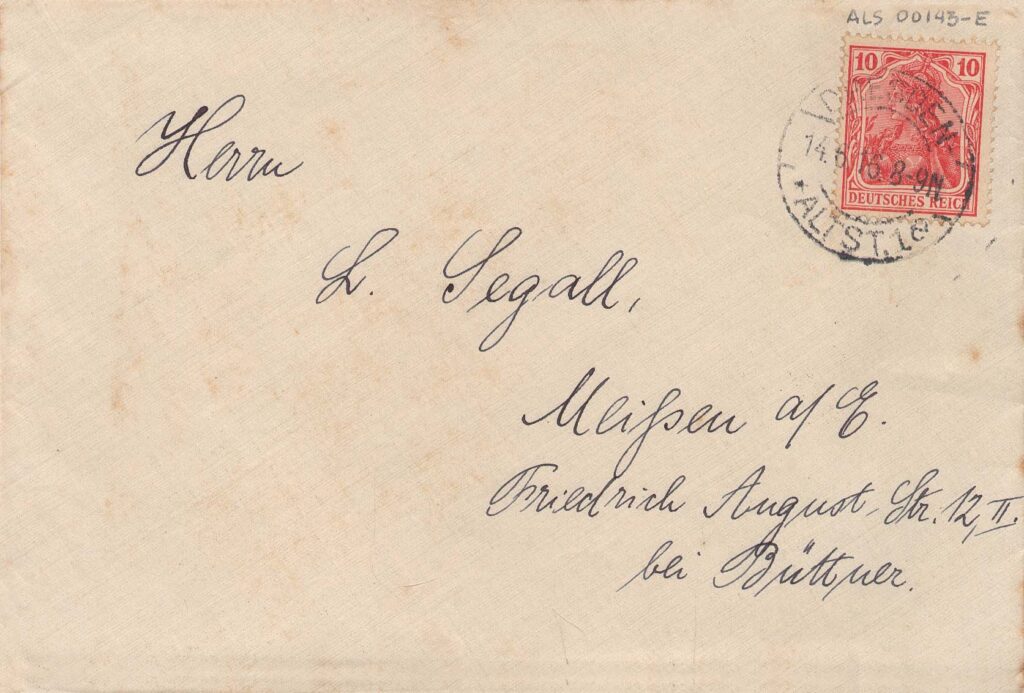 ALS 00143-E
10 10
DEUTSCHES REICH
14.6.16.8-9N
ALTST.
Herrn
L. Segall,
Meißen a/E.
Friedrich August-Str. 12, II.
bei Büttner.